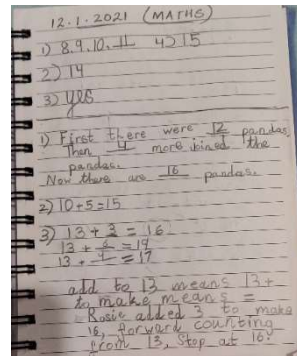 12.1.2021 (MATHS)
1) 8,9,10,11 4) 15
2) 14
3) yes
1) First there were 12 pandas.
Then 4 more joined the
pandas.
Now there are 16 pandas.
2) 10+5=15
3) 13 + 3 = 16
13 + 6 = 19
13 + 4 = 17
add to 13 means 13+
to make means =
Rosie added 3 to make
16, forward counting
from 13, Stop at 16.